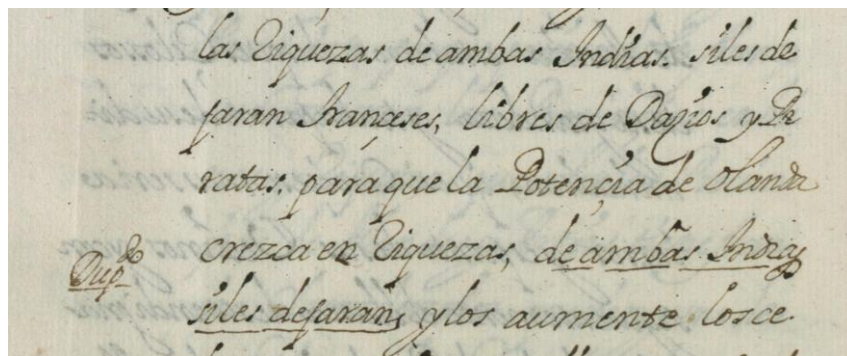 las Riquezas de ambas Indias. siles de
jaran franceses, libres de Daños y Pi
ratas. para que la Potençia de olanda
crezca en Riquezas, de ambas Indias
Dup.do
siles dejaran, y los aumente. los ce